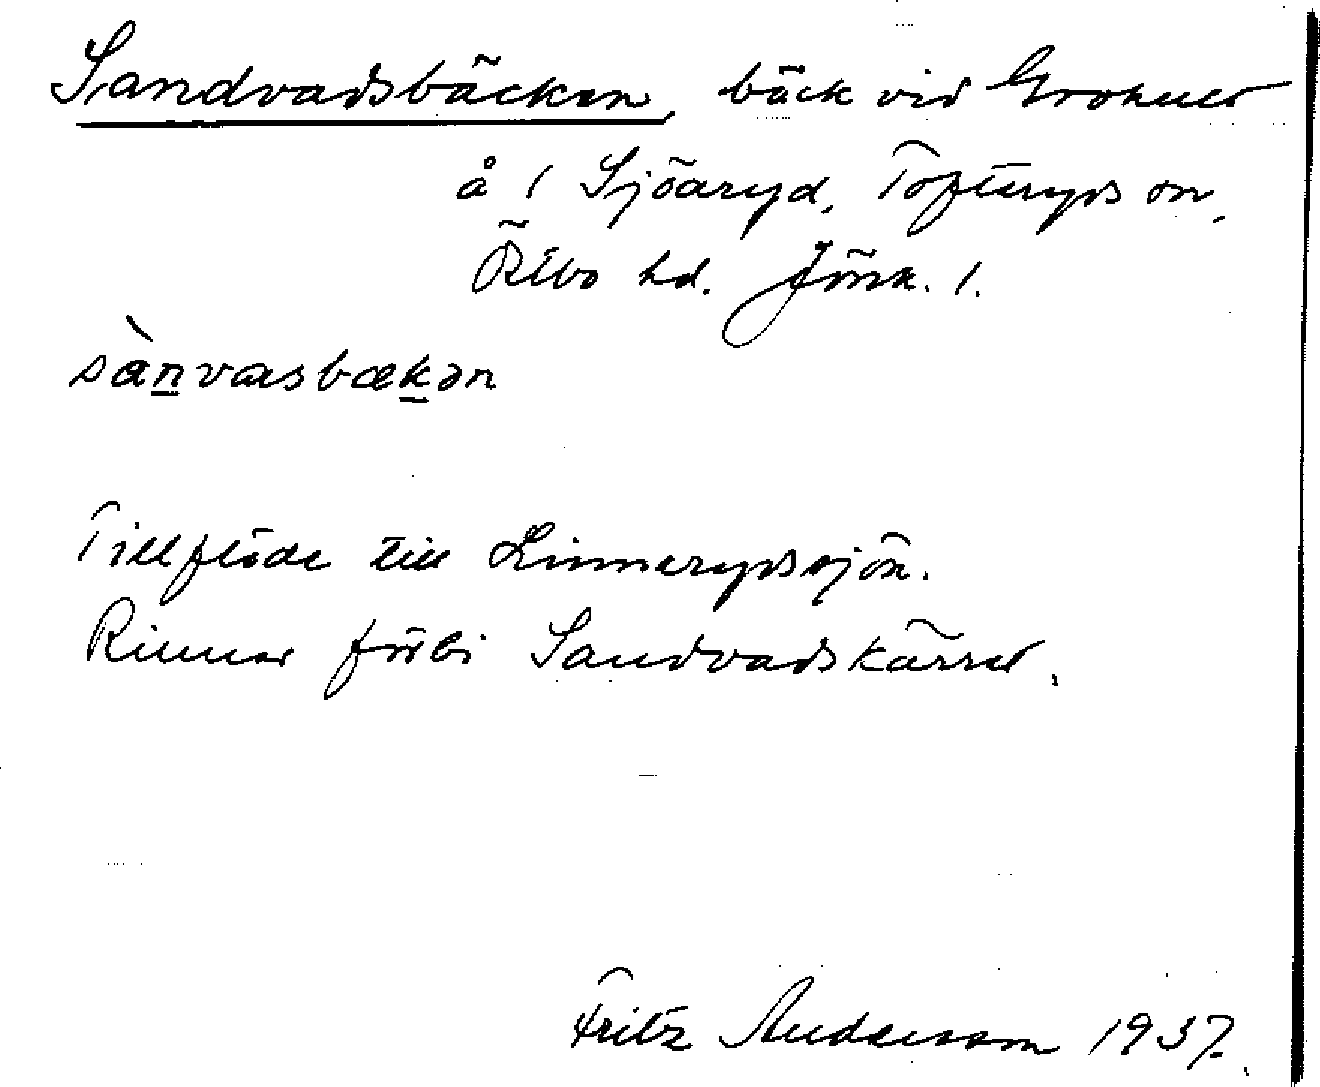 Sandvadsbäcken, bäck vid
å i Sjöaryd, Tofteryds sn,
Östbo hd. Jönk. l.
sànvasbækən
Tillflöde till Linnerydssjön.
Rinner förbi Sandvadskärret.
Fritz Andersson 1937.